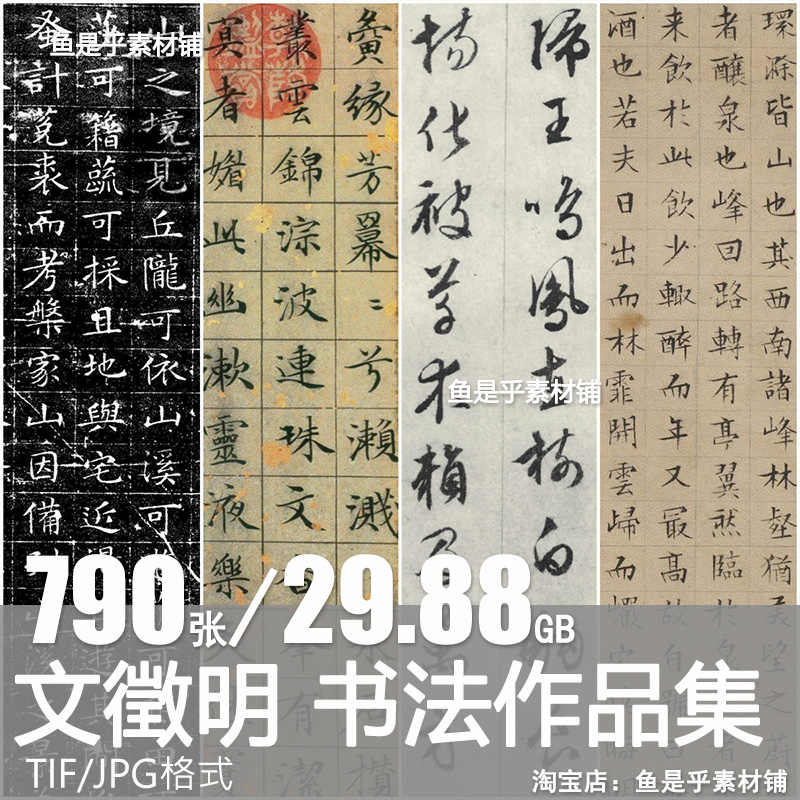 鱼是乎素材铺
山之境見丘隴可依山溪可
可籍蔬可採且地與宅近
蚤計菟裘而考槃家山因備
緣芳羃〻兮瀨濺
叢雲錦淙波連珠文
寞者此幽漱靈液樂
歸王鳴鳳在樹白
場化被草木賴及
鱼是乎素材铺
環滁皆山也其西南諸峰林壑猶美望之蔚
者釀泉也峰回路轉有亭翼然臨於泉
来飲於此飲少輒醉而年又最高故自
酒也若夫日出而林霏開雲歸而巖穴
790张/29.88GB
文徵明 书法作品集
TIF/JPG格式
淘宝店：鱼是乎素材铺